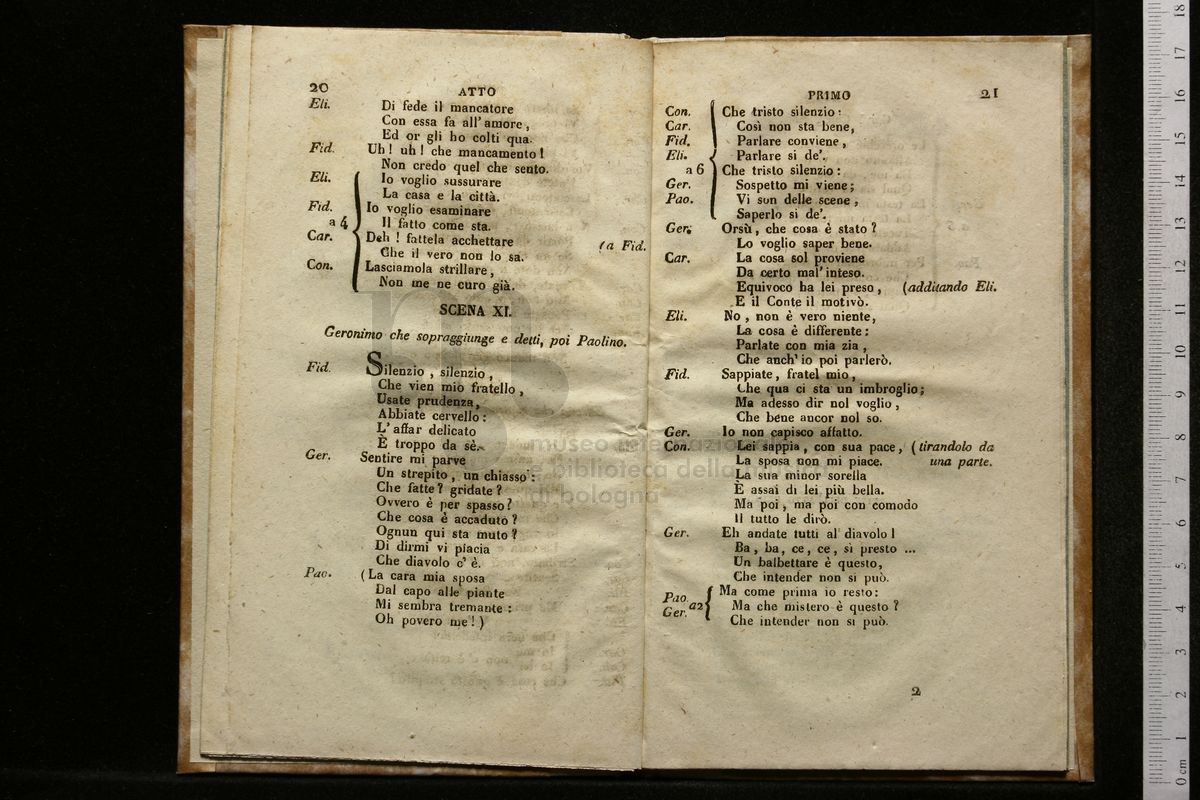 20 ATTO
Eli. Di fede il mancatore
Con essa fa all' amore,
Ed or gli ho colti qua.
Fid. Uh! uh! che mancamento!
Non credo quel che sento.
Eli. Io voglio sussurare
La casa e la città.
Fid. Io voglio esaminare
a 4 Il fatto come sta.
Car. Deh! fattela acchettare (a Fid.
Che il vero non lo sa.
Con. Lasciamola strillare,
Non me ne curo già.
SCENA XI.
Geronimo che sopraggiunge e detti, poi Paolino.
Fid. Silenzio, silenzio,
Che vien mio fratello,
Usate prudenza,
Abbiate cervello:
L' affar delicato
È troppo da sè.
Ger. Sentire mi parve
Un strepito, un chiasso:
Che fatte? gridate?
Ovvero è per spasso?
Che cosa è accaduto?
Ognun qui sta muto?
Di dirmi vi piacia
Che diavolo c' è.
Pao. (La cara mia sposa
Dal capo alle piante
Mi sembra tremante:
Oh povero me!)
PRIMO 21
Con. Che tristo silenzio:
Car. Così non sta bene,
Fid. Parlare conviene,
Eli. Parlare si de'.
a 6 Che tristo silenzio:
Ger. Sospetto mi viene;
Pao. Vi son delle scene,
Saperlo si de'.
Ger. Orsù, che cosa è stato?
Lo voglio saper bene.
Car. La cosa sol proviene
Da certo mal' inteso.
Equivoco ha lei preso, (additando Eli.
E il Conte il motivò.
Eli. No, non è vero niente,
La cosa è differente:
Parlate con mia zia,
Che anch' io poi parlerò.
Fid. Sappiate, fratel mio,
Che qua ci sta un imbroglio;
Ma adesso dir nol voglio,
Che bene ancor nol so.
Ger. Io non capisco affatto.
Con. Lei sappia, con sua pace, (tirandolo da
La sposa non mi piace. una parte.
La sua minor sorella
È assai di lei più bella.
Ma poi, ma poi con comodo
Il tutto le dirò.
Ger. Eh andate tutti al diavolo!
Ba, ba, ce, ce, si presto ...
Un balbettare è questo,
Che intender non si può.
Pao. Ma come prima io resto:
a2 Ma che mistero è questo?
Ger. Che intender non si può.
2
museo internazionale
e biblioteca della musica
di bologna
0 cm 1 2 3 4 5 6 7 8 9 10 11 12 13 14 15 16 17 18